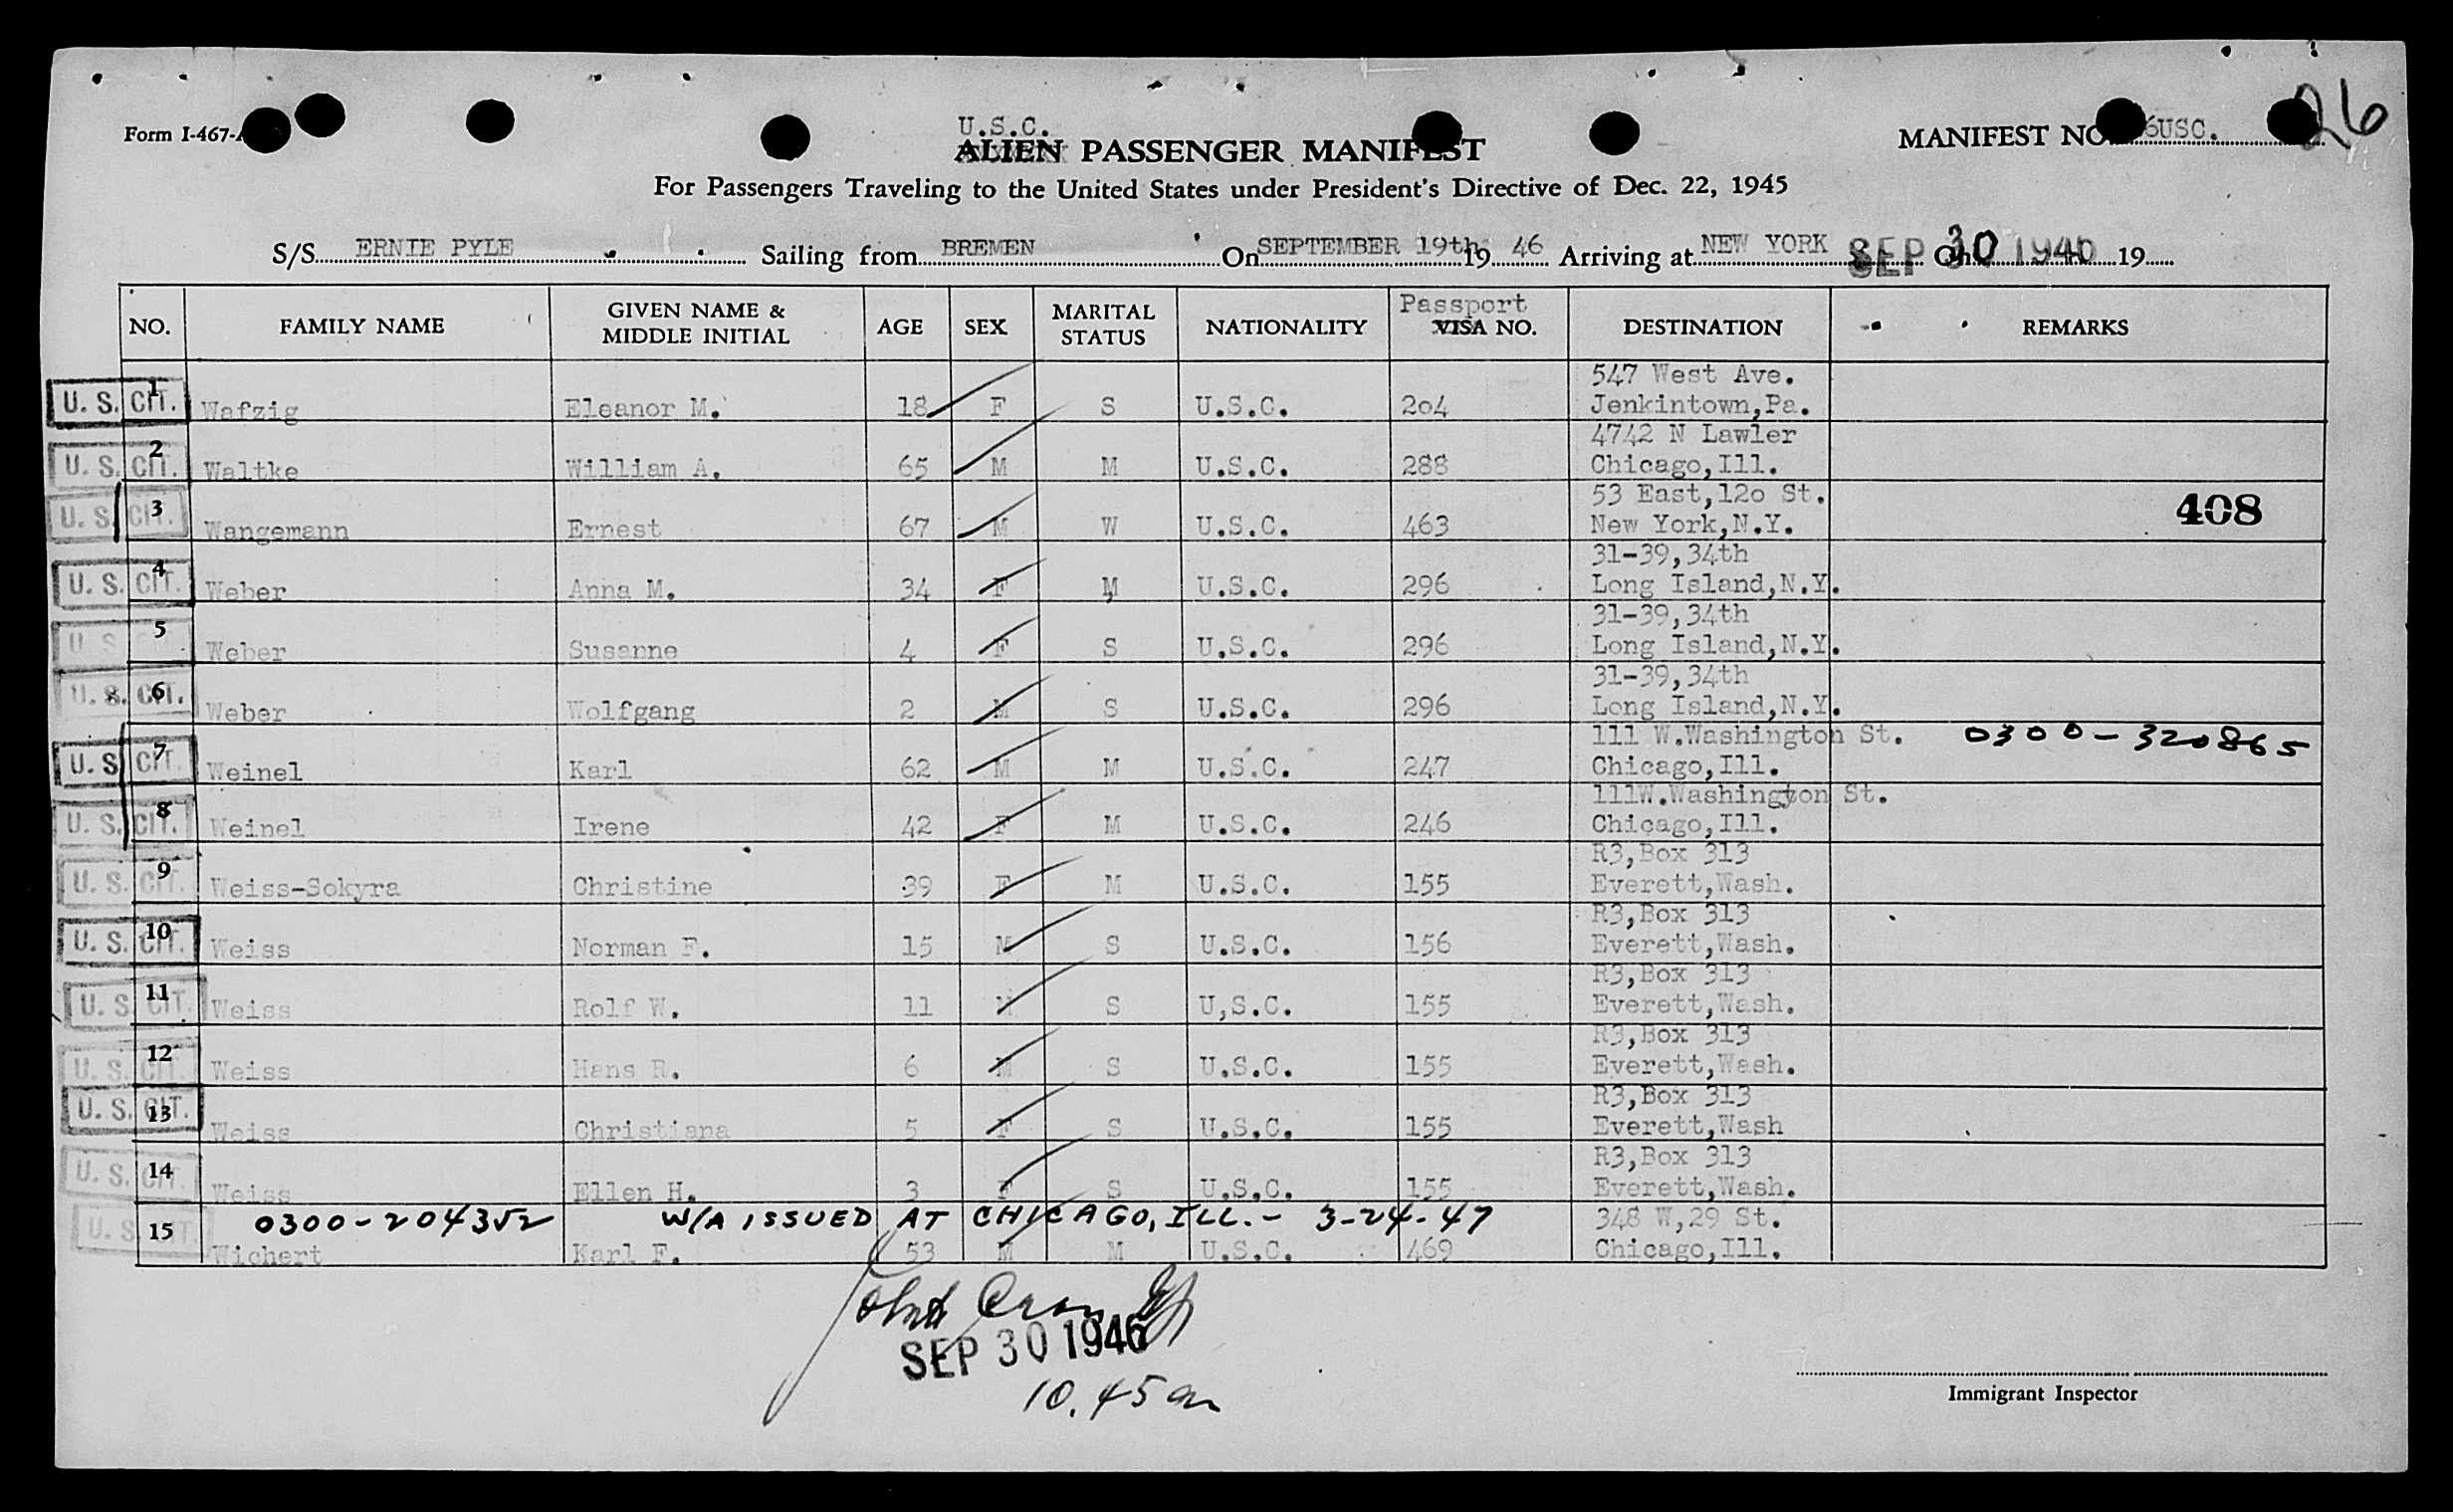 Form I-467-
U.S.C.
ALIEN PASSENGER MANIFEST
MANIFEST NO. 6USC. 26
For Passengers Traveling to the United States under President's Directive of Dec. 22, 1945
S/S ERNIE PYLE Sailing from BREMEN On SEPTEMBER 19th 19 46 Arriving at NEW YORK SEP 30 1946 On 19
NO. FAMILY NAME GIVEN NAME & MIDDLE INITIAL AGE SEX MARITAL STATUS NATIONALITY Passport VISA NO. DESTINATION REMARKS
547 West Ave.
U. S. CIT. 1 Wafzig Eleanor M. 18 F S U.S.C. 204 Jenkintown,Pa.
4742 N Lawler
U. S. CIT. 2 Waltke William A. 65 M M U.S.C. 288 Chicago,Ill.
53 East,12o St. 408
U. S. CIT. 3 Wangemann Ernest 67 M W U.S.C. 463 New York,N.Y.
31-39,34th
U. S. CIT. 4 Weber Anna M. 34 F M U.S.C. 296 Long Island,N.Y.
31-39,34th
U S 5 Weber Susanne 4 F S U.S.C. 296 Long Island,N.Y.
31-39,34th
U. S. CIT. 6 Weber Wolfgang 2 M S U.S.C. 296 Long Island,N.Y.
111 W.Washington St. 0300-320865
U. S. CIT. 7 Weinel Karl 62 M M U.S.C. 247 Chicago,Ill.
111W.Washington St.
U. S. CIT. 8 Weinel Irene 42 F M U.S.C. 246 Chicago,Ill.
R3,Box 313
U. S. CIT. 9 Weiss-Sokyra Christine 39 F M U.S.C. 155 Everett,Wash.
R3,Box 313
U. S. CIT. 10 Weiss Norman F. 15 M S U.S.C. 156 Everett,Wash.
R3,Box 313
U. S. CIT. 11 Weiss Rolf W. 11 M S U,S.C. 155 Everett,Wash.
R3,Box 313
U. S. CIT. 12 Weiss Hans R. 6 M S U.S.C. 155 Everett,Wash.
R3,Box 313
U. S. CIT. 13 Weiss Christiana 5 F S U.S.C. 155 Everett,Wash
R3,Box 313
U. S. CIT. 14 Weiss Ellen H. 3 F S U.S.C. 155 Everett,Wash.
0300-204352 W/A ISSUED AT CHICAGO, ILL. - 3-24-47 348 W,29 St.
U. S. CIT. 15 Wichert Karl F. 53 M M U.S.C. 469 Chicago,Ill.
SEP 30 1946
10.45 am
Immigrant Inspector